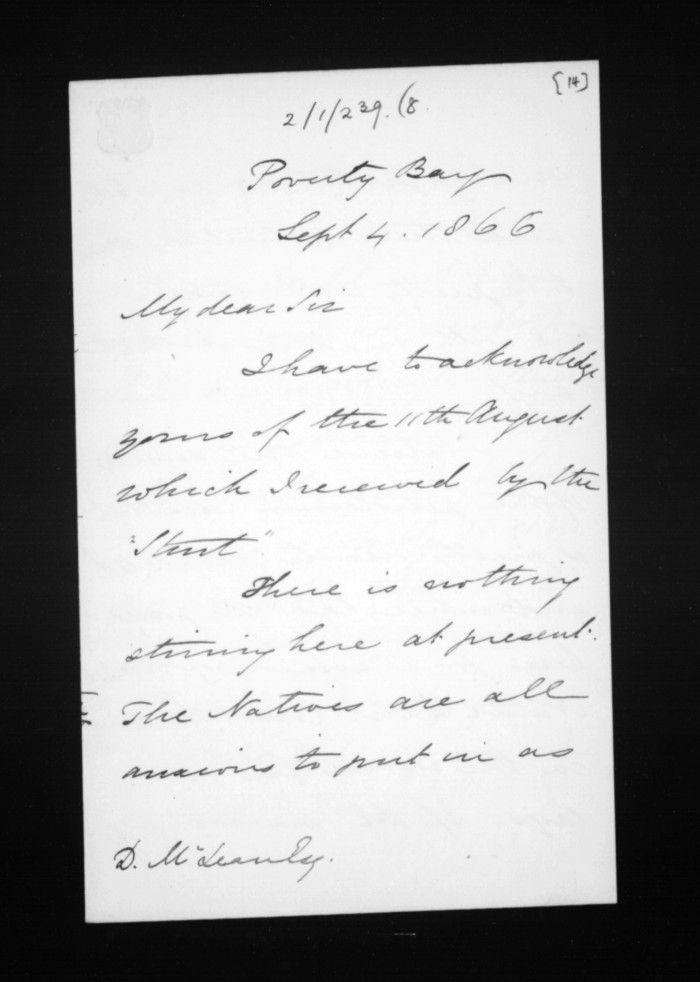 [14]
2/1/239. (8.
Poverty Bay
Sept 4. 1866
My dear Sir
I have to acknowledge
yours of the 11th August
which I received by the
"Sturt".
There is nothing
stirring here at present.
The Natives are all
anxious to put in as
D. McLean Esq.